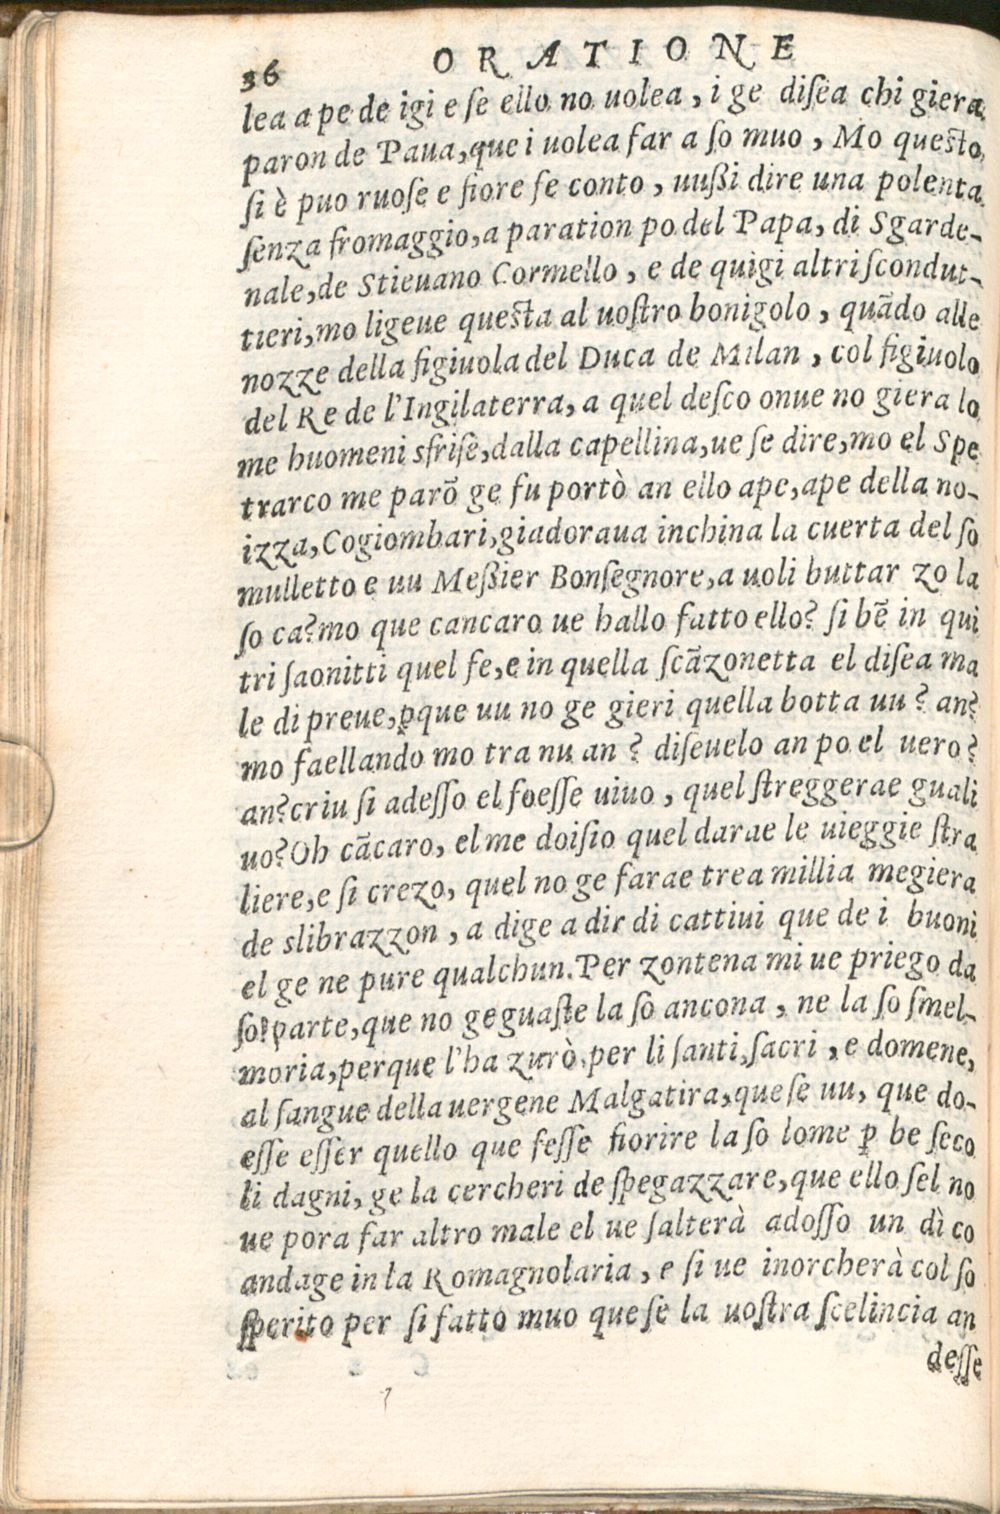 36 ORATIONE
lea a pe de igi e se ello no uolea, i ge disea chi giera
paron de Paua, que i uolea far a so muo, Mo questo
si è puo ruose e fiore fe conto, uußi dire una polenta
senza fromaggio, a paration po del Papa, di Sgarde-
nale, de Stieuano Cormello, e de quigi altri scondut-
tieri, mo ligeue questa al uostro bonigolo, quãdo alle
nozze della figiuola del Duca de Milan, col figiuolo
del Re de l'Ingilaterra, a quel desco onue no giera lo
me huomeni sfrisè, dalla capellina, ue se dire, mo el Spe
trarco me parõ ge fu portò an ello ape, ape della no-
izza, Cogiombari, giadoraua inchina la cuerta del so
mulletto e uu Meßier Bonsegnore, a uoli buttar zo la
so ca? mo que cancaro ue hallo fatto ello? si bẽ in qui
tri saonitti quel fe, e in quella scãzonetta el disea ma
le di preue, ꝑque uu no ge gieri quella botta uu? an?
mo faellando mo tra nu an? diseuelo an po el uero?
an? criu si adesso el foesse uiuo, quel streggerae guali
uo? Oh cãcaro, el me doisio quel darae le uieggie stra
liere, e si crezo, quel no ge farae trea millia megiera
de slibrazzon, a dige a dir di cattiui que de i buoni
el ge ne pure qualchun. Per zontena mi ue priego da
so ꝑarte, que no ge guaste la so ancona, ne la so smel-
moria, perque l'ha zurò per li santi, sacri, e domene,
al sangue della uergene Malgatira, que se uu, que do-
esse esser quello que fesse fiorire la so lome ꝑ be seco
li dagni, ge la cercheri de spegazzare, que ello sel no
ue pora far altro male el ue salterà adosso un dì co
andage in la Romagnolaria, e si ue inorcherà col so
sperito per si fatto muo que se la uostra scelincia an
desse